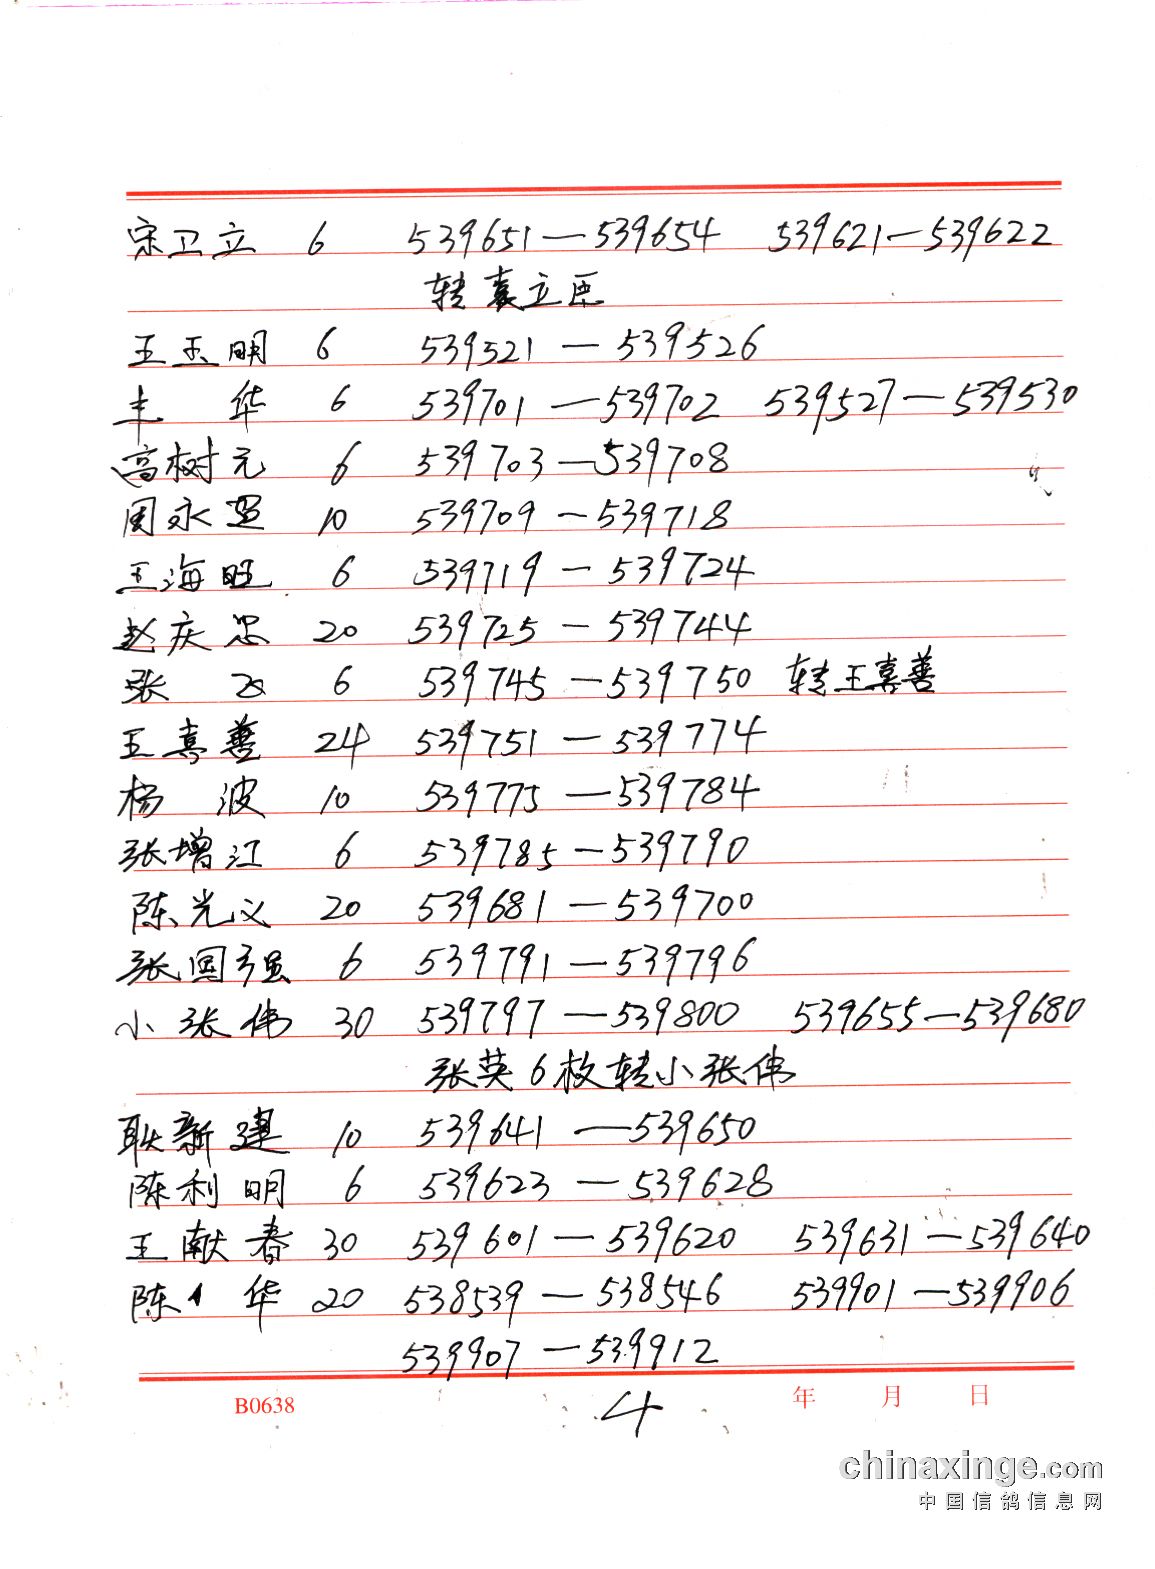 宋卫立 6 539651—539654 539621—539622
转袁立臣
王玉明 6 539521—539526
丰华 6 539701—539702 539527—539530
高树元 6 539703—539708
周永 10 539709—539718
王海旺 6 539719—539724
赵庆忠 20 539725—539744
张 6 539745—539750 转王喜善
王喜善 24 539751—539774
杨波 10 539775—539784
张增江 6 539785—539790
陈光义 20 539681—539700
张国强 6 539791—539796
小张伟 30 539797—539800 539655—539680
张英6枚转小张伟
耿新建 10 539641—539650
陈利明 6 539623—539628
王献春 30 539601—539620 539631—539640
陈华 20 538539—538546 539901—539906
539907—539912
B0638 年 月 日
4
chinaxinge.com
中国信鸽信息网